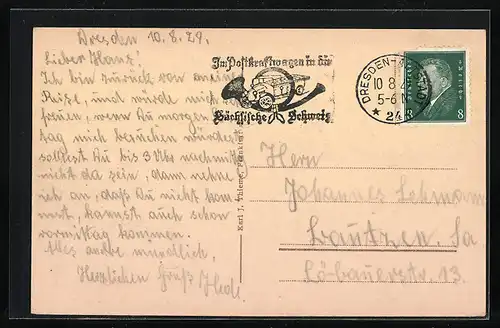 Dresden 10.8.29.
Lieber Hans!
Ich bin zurück von meiner
Reise, und würde mich
freuen, wenn Du morgen
tag mich besuchen würdest
solltest Du bis 3 Uhr nachmitt.
nicht da sein, dann nehme
ich an, daß Du nicht kom
mst, kannst auch schon
vormittag kommen.
Alles andre mündlich,
Herzlichen Gruß
Im Postkraftwagen in die
Sächsische Schweiz
DRESDEN-
10 8
5-6 N
* 24
8
Karl J. Thieme, Frankfurt
Herrn
Johannes Lehmann
Bautzen. Sa
Löbauerstr. 13.